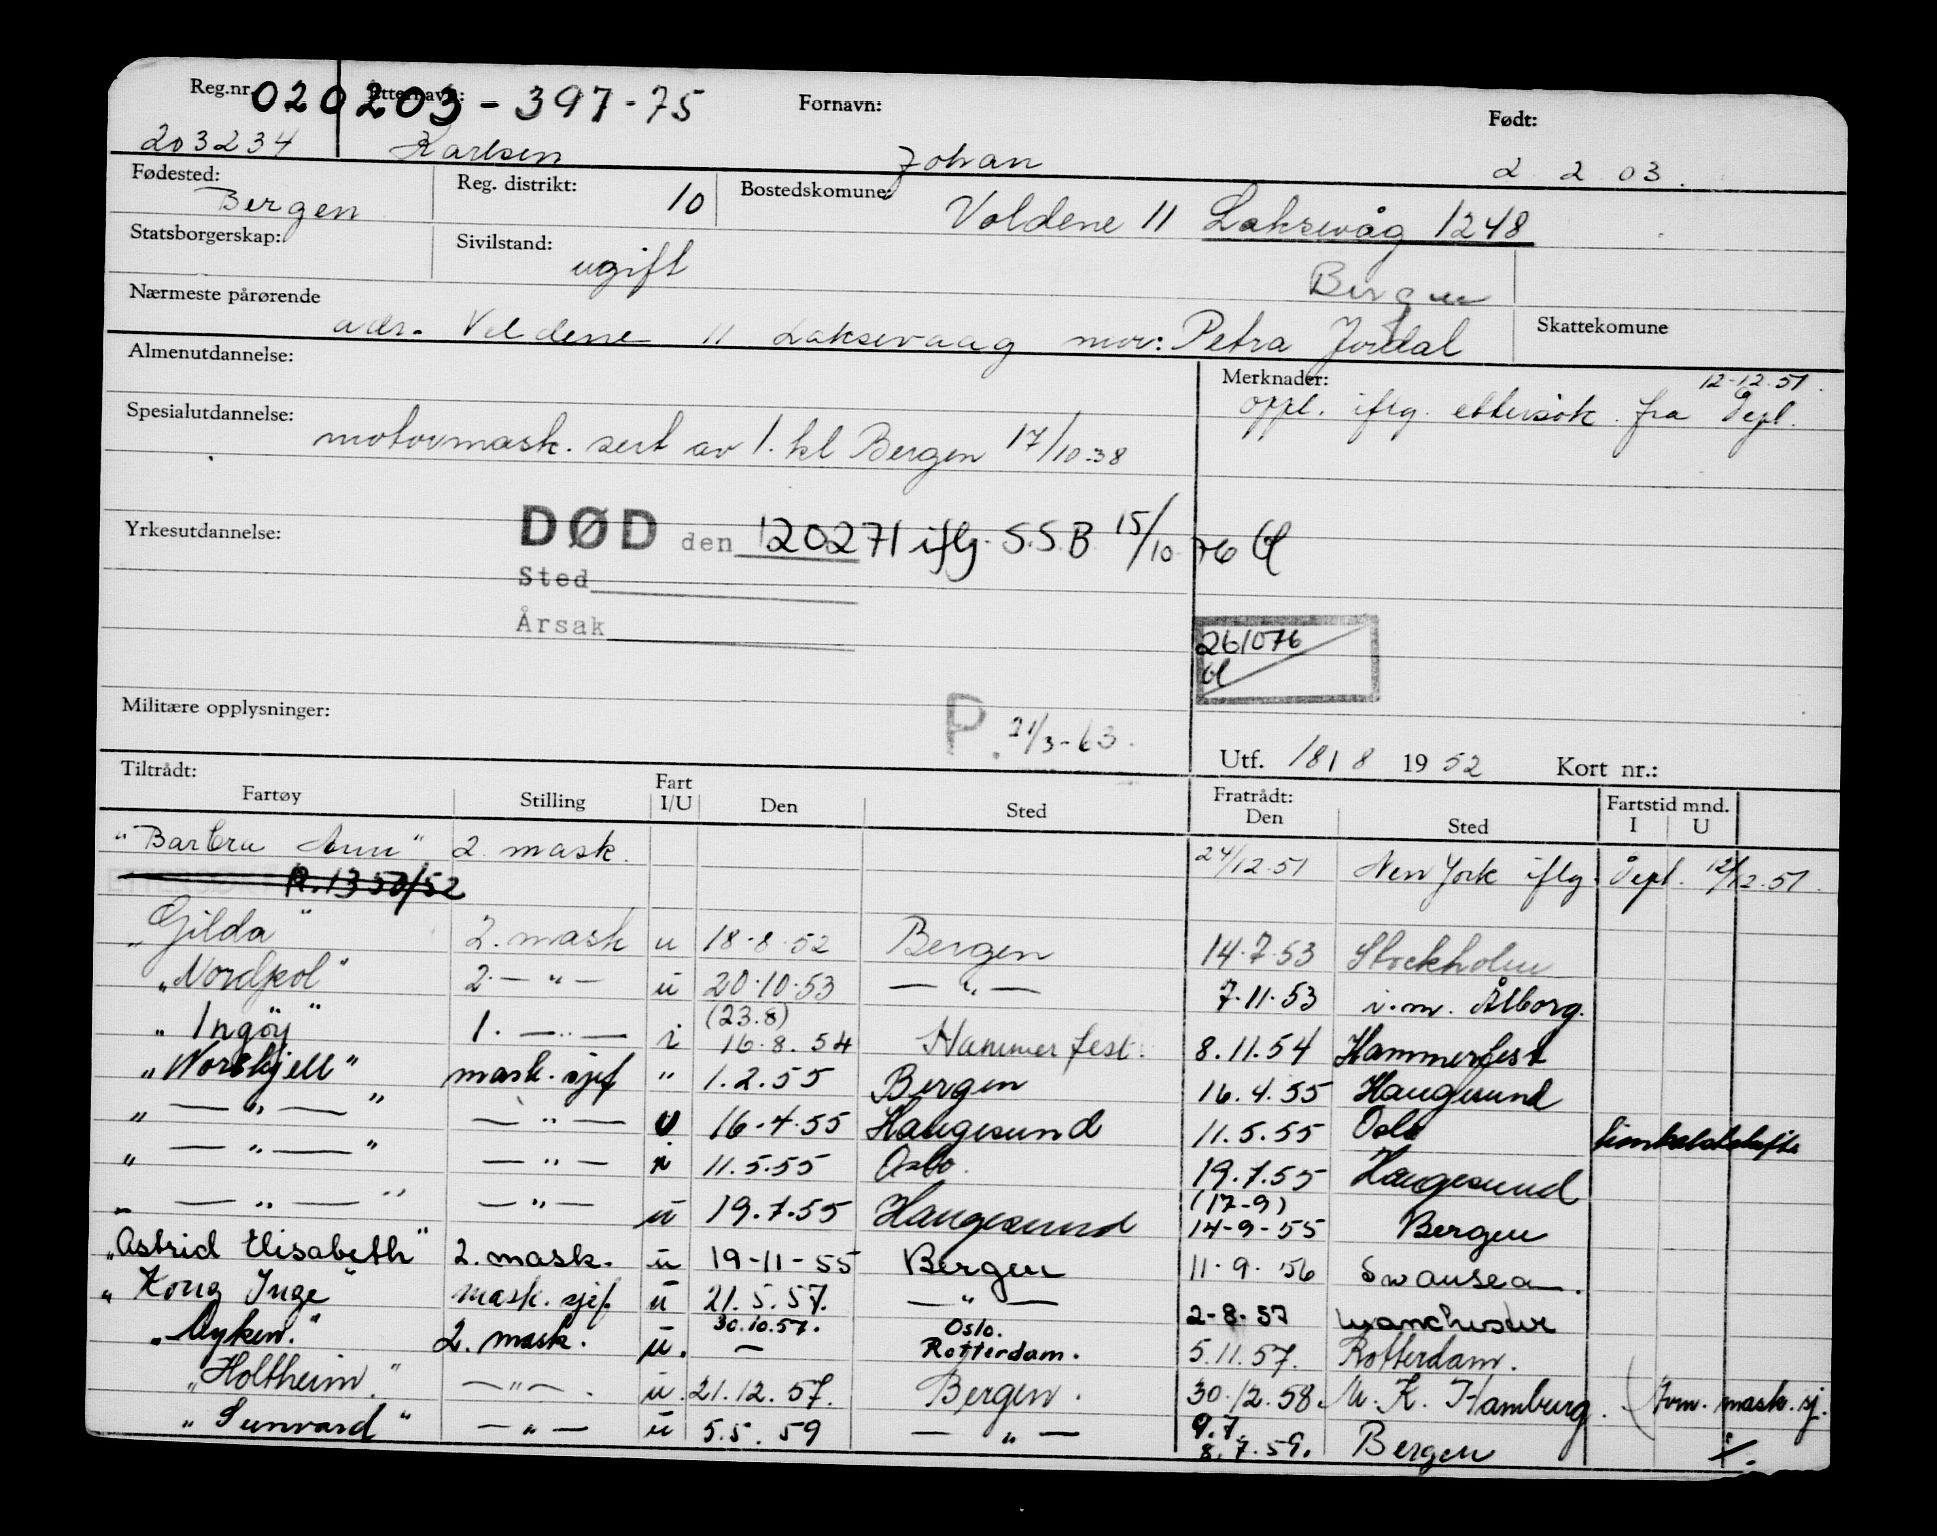 Reg.nr. 020203-397-75 Etternavn: Fornavn: Født:
203234 Karlsen Johan 2 2 03.
Fødested: Bergen Reg. distrikt: 10 Bostedskomune: Voldene 11 Laksevåg 1248
Statsborgerskap: Sivilstand: ugift Bergen
Nærmeste pårørende adr. Voldene 11 Laksevaag mor: Petra Jordal Skattekomune
Almenutdannelse: Merknader: 12-12.51.
oppl. iflg. ettersøk. fra Depl.
Spesialutdannelse: motormask. sert av 1. kl Bergen 17/10.38
Yrkesutdannelse: DØD den 120271 iflg. S.S.B 15/10 76
Sted
Årsak
261076
Militære opplysninger: P. 21/3-63.
Utf. 18/8 1952 Kort nr.:
Tiltrådt: Fratrådt: Fartstid mnd.
Fartøy Stilling Fart I/U Den Sted Den Sted I U
"Barbru Ann" 2. mask. 24/12.51 New York iflg. Depl. 12/12.51.
R.1350/52
"Gilda" 2. mask u 18.8.52 Bergen 14.7.53 Stockholm
"Nordpol" 2. — " — u 20.10.53 — " — 7.11.53 i.m. Ålborg.
(23.8)
"Ingöy" 1. — " — i 16.8.54 Hammerfest. 8.11.54 Hammerfest
"Norskjell" mask. sjef " 1.2.55 Bergen 16.4.55 Haugesund
" — " — " — " — u 16-4-55 Haugesund 11.5.55 Oslo
" — " — " — " — i 11.5.55 Oslo. 19.7.55 Haugesund
(17-9)
" — " — " — " — u 19.7.55 Haugesund 14-9-55 Bergen
"Astrid Elisabeth" 2. mask. u 19-11-55 Bergen 11.9.56 Swansea.
"Kong Inge" mask. sjef. u 21.5.57. — " — 2-8-57 Manchester
30.10.57. Oslo.
2. mask. u. — Rotterdam. 5.11.57. Rotterdam.
"Holtheim." — " — . u. 21.12.57. Bergen. 30.12.58. M. K. Hamburg. mask. sj.
9.7.
"Sunvard" — " — u 5.5.59 — " — 8.7.59. Bergen